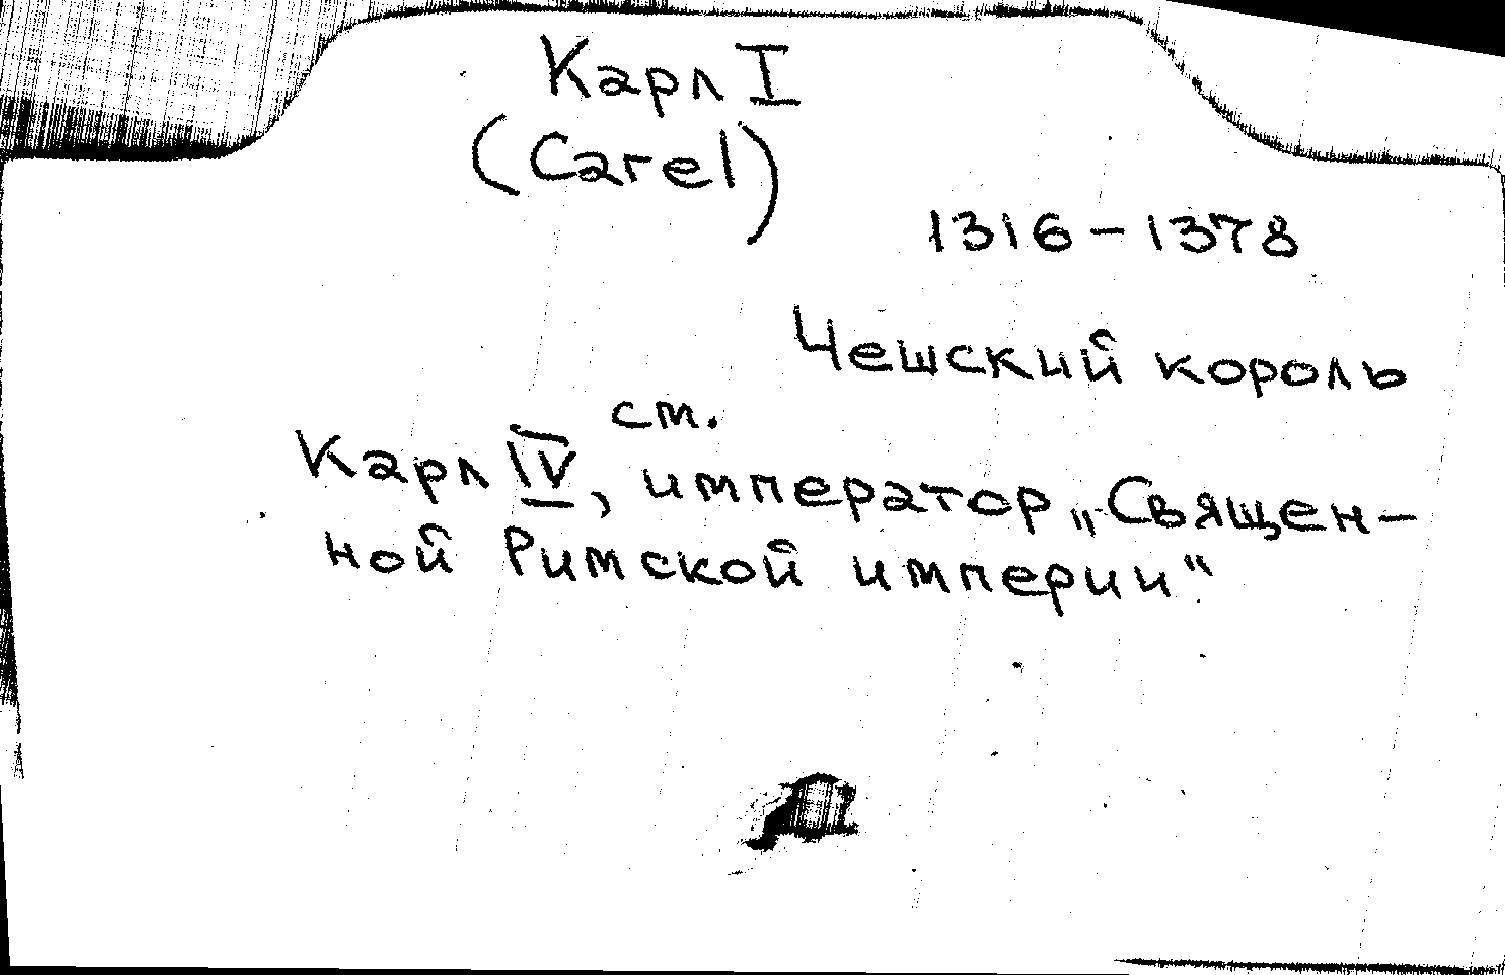 Карл I
(Carel)
1316 - 1378
Чешский король
ст.
Карл IV, император „Священ-
ной Римской империи"